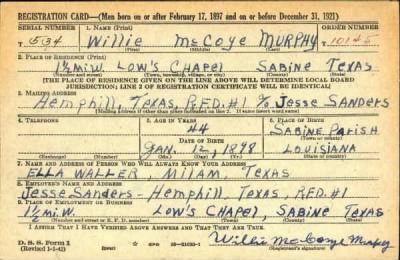 REGISTRATION CARD—(Men born on or after February 17, 1897 and on or before December 31, 1921)
SERIAL NUMBER 1. NAME (Print) ORDER NUMBER
T 534 Willie McCoye MURPHY T 10145
(First) (Middle) (Last)
2. PLACE OF RESIDENCE (Print)
1½ mi W. Low's Chapel Sabine Texas
(Number and street) (Town, township, village, or city) (County) (State)
[THE PLACE OF RESIDENCE GIVEN ON THE LINE ABOVE WILL DETERMINE LOCAL BOARD
JURISDICTION; LINE 2 OF REGISTRATION CERTIFICATE WILL BE IDENTICAL]
3. MAILING ADDRESS
Hemphill, Texas, R.F.D. #1 % Jesse Sanders
[Mailing address if other than place indicated on line 2. If same insert word same]
4. TELEPHONE 5. AGE IN YEARS 6. PLACE OF BIRTH
44 Sabine Parish
DATE OF BIRTH (Town or county)
JAN. 12, 1898 Louisiana
(Exchange) (Number) (Mo.) (Day) (Yr.) (State or country)
7. NAME AND ADDRESS OF PERSON WHO WILL ALWAYS KNOW YOUR ADDRESS
Ella Waller Milam, Texas
8. EMPLOYER'S NAME AND ADDRESS
Jesse Sanders - Hemphill, Texas, RFD. #1
9. PLACE OF EMPLOYMENT OR BUSINESS
1½ mi. W. Low's Chapel, Sabine Texas
(Number and street or R. F. D. number) (Town) (County) (State)
I AFFIRM THAT I HAVE VERIFIED ABOVE ANSWERS AND THAT THEY ARE TRUE.
D. S. S. Form 1
(Revised 1-1-42) Willie McCoye Murphy
(Registrant's signature)